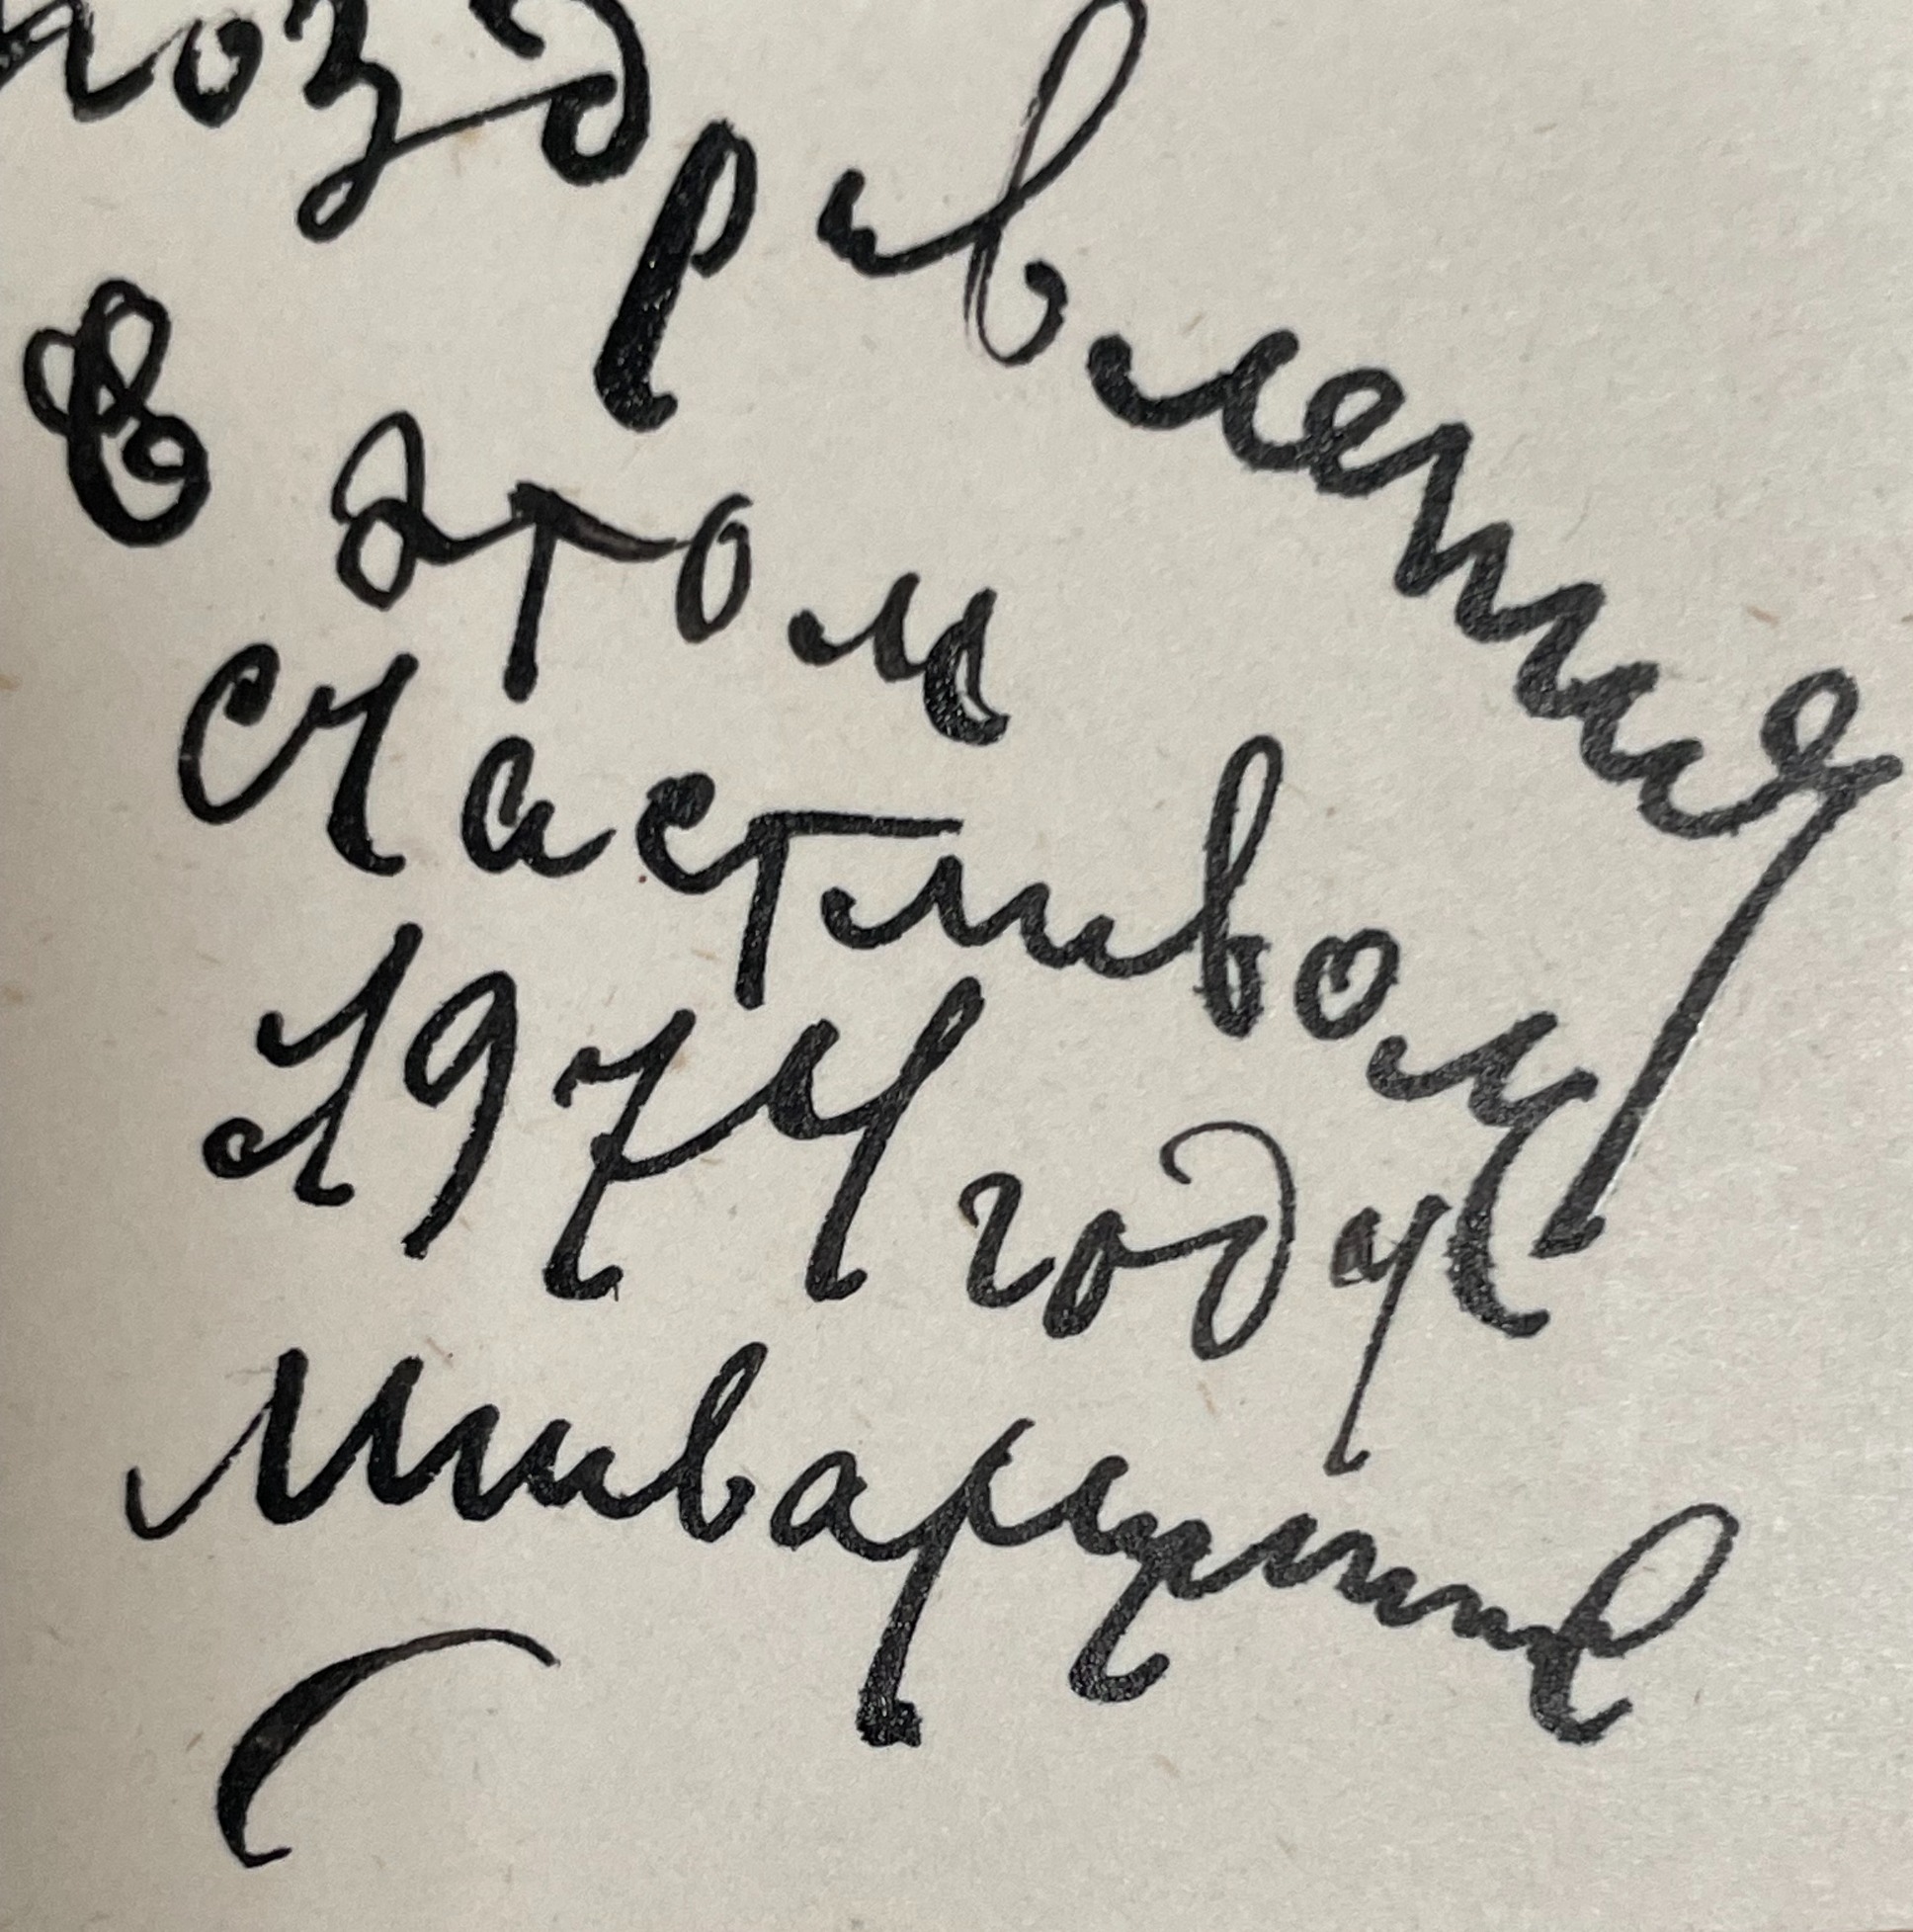 поздравления
в этом
счастливом
1974 году